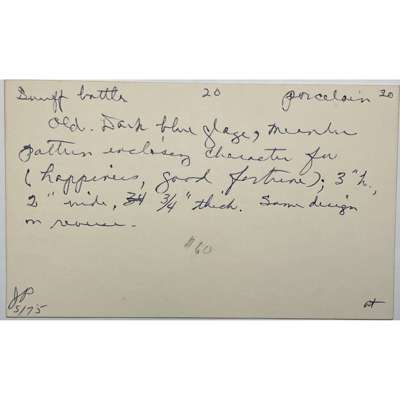 Snuff bottle 20 porcelain 20
Old. Dark blue glaze, meander
pattern enclosing character for
(happiness, good fortune); 3" h.,
2" wide, 3/4" thick. Same design
on reverse.
#60
JP
5/75